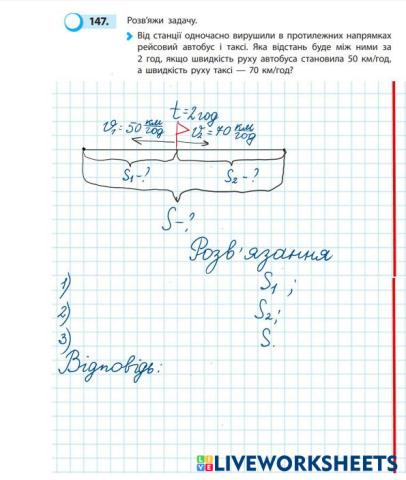 147. Розв'яжи задачу.
Від станції одночасно вирушили в протилежних напрямках
рейсовий автобус і таксі. Яка відстань буде між ними за
2 год, якщо швидкість руху автобуса становила 50 км/год,
а швидкість руху таксі — 70 км/год?
t=2год
v₁=50 км/год v₂=70 км/год
S₁-? S₂-?
S-?
Розв'язання
1) S₁;
2) S₂;
3) S.
Відповідь:
LIVEWORKSHEETS